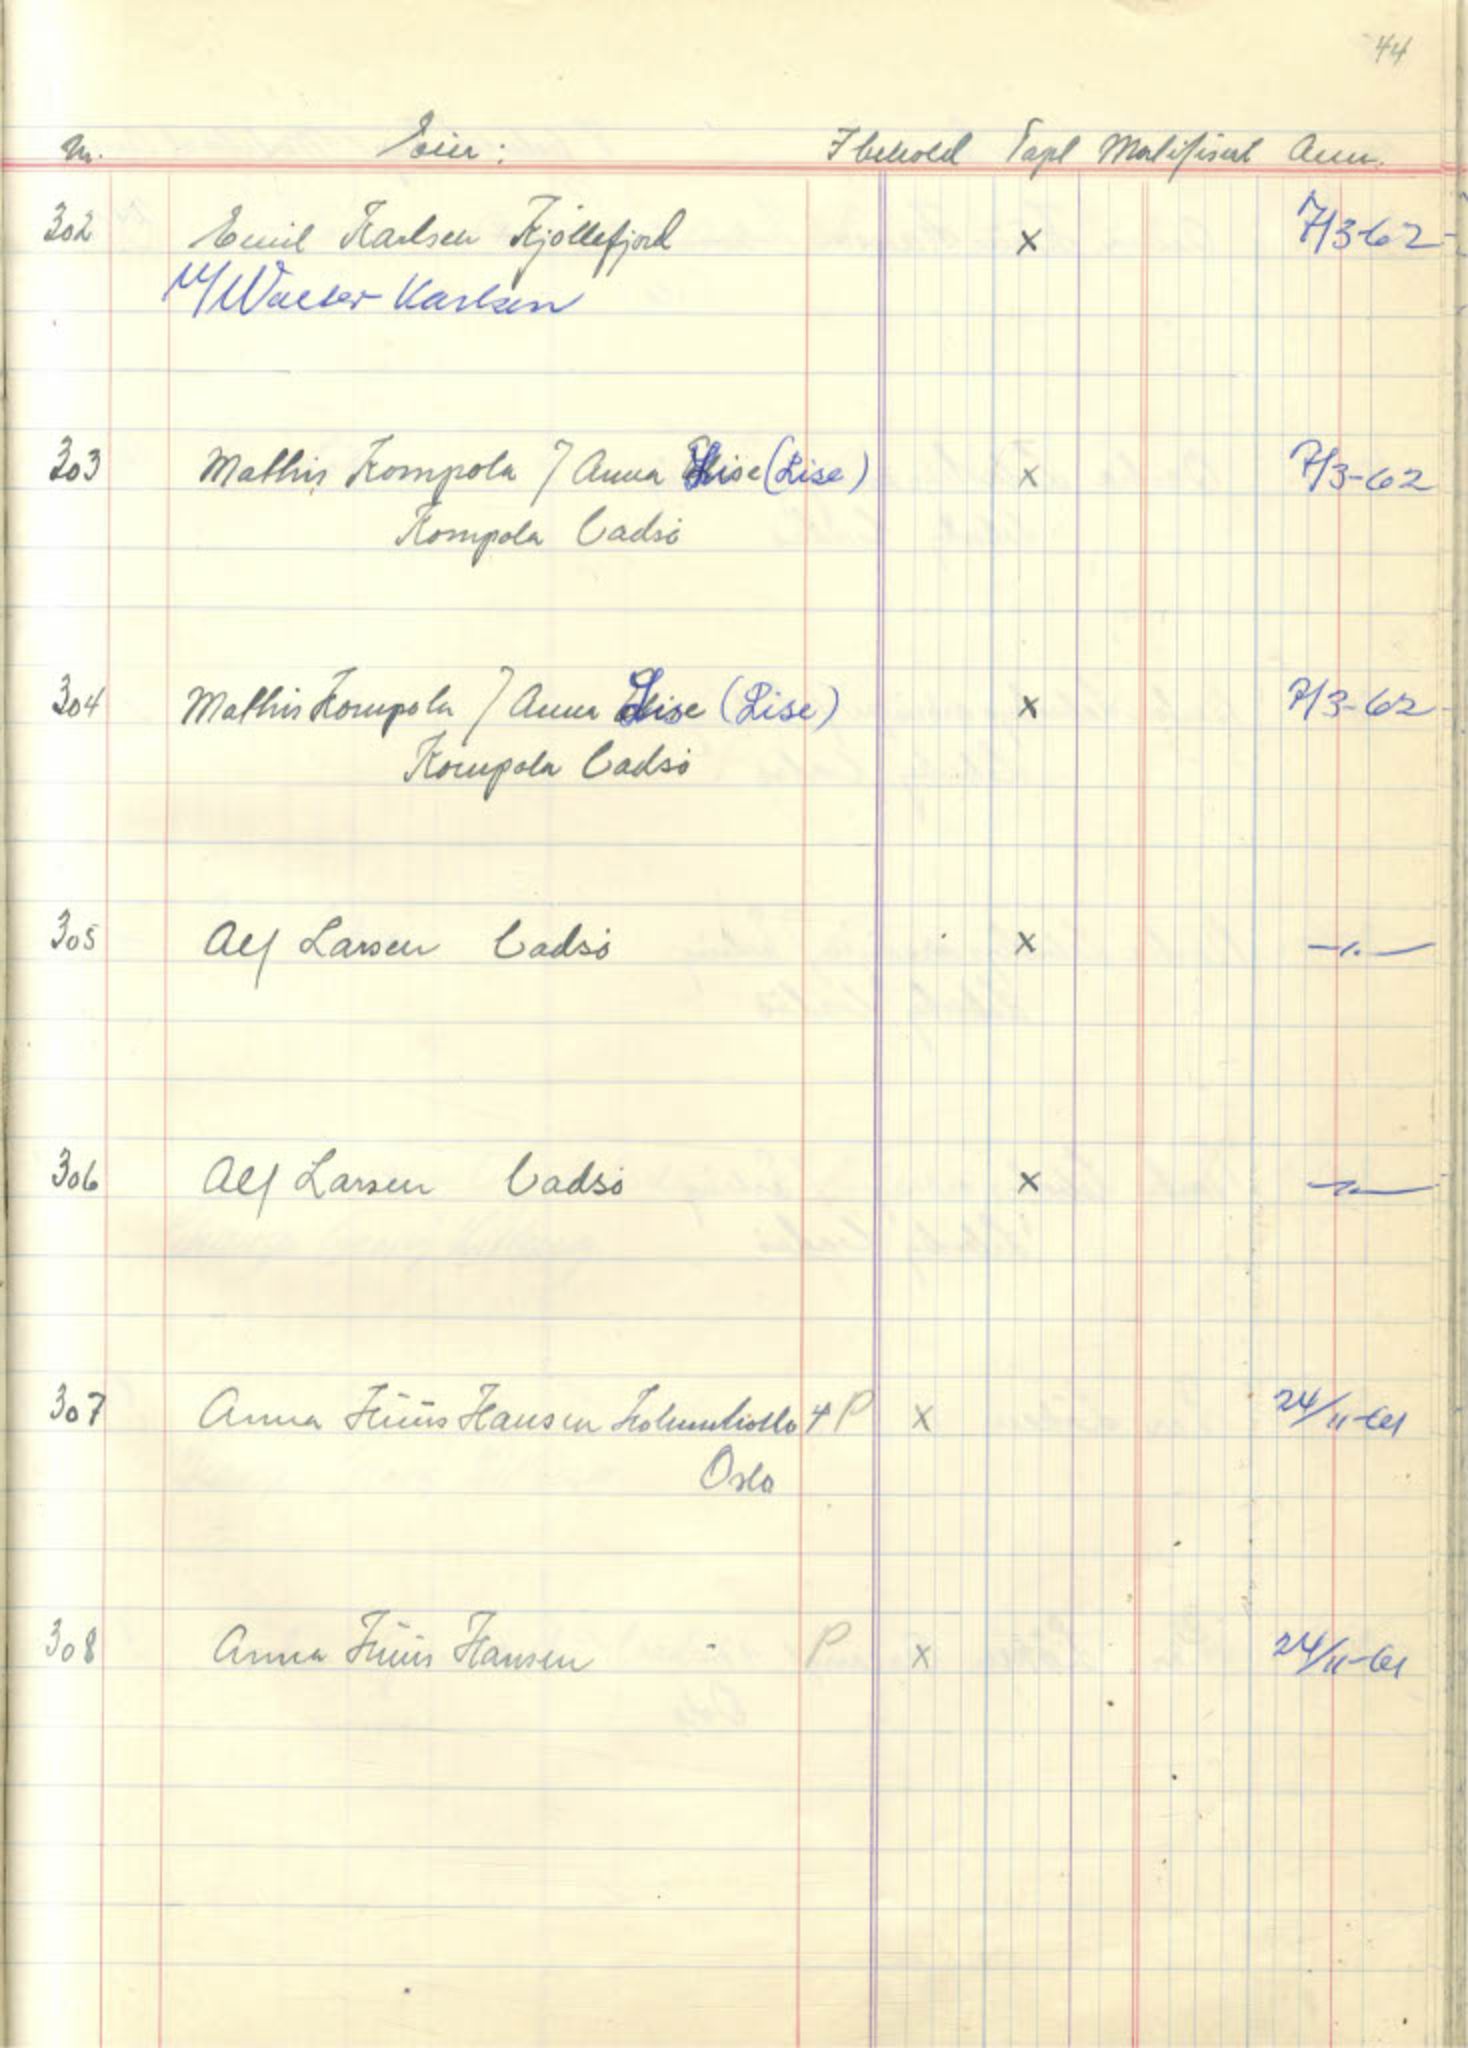 44
Nr. Eier: I behold Tapt Mortifisert Anm.
302 Emil Karlsen Kjøllefjord x 7/3-62
v/Walter Karlsen
303 Mathis Kompola / Anna Lise (Lise) x 7/3-62
Kompola Vadsø
304 Mathis Kompola / Anna Lise (Lise) x 7/3-62
Kompola Vadsø
305 Alf Larsen Vadsø x —"—
306 Alf Larsen Vadsø x —"—
307 Anna Huus Hansen 4 P x 24/11-61
Oslo
308 Anna Huus Hansen P x 24/11-61